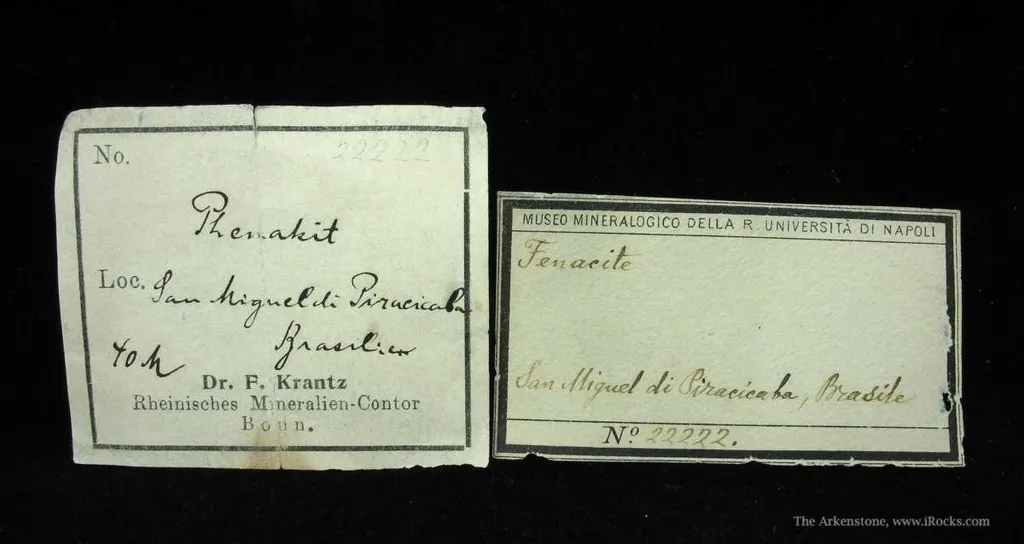 No. 22222
Phenakit
Loc. San Miguel di Piracicaba
Brasilien
40 M
Dr. F. Krantz
Rheinisches Mineralien-Contor
Bonn.
MUSEO MINERALOGICO DELLA R. UNIVERSITÀ DI NAPOLI
Fenacite
San Miguel di Piracicaba, Brasile
Nº 22222.
The Arkenstone, www.iRocks.com